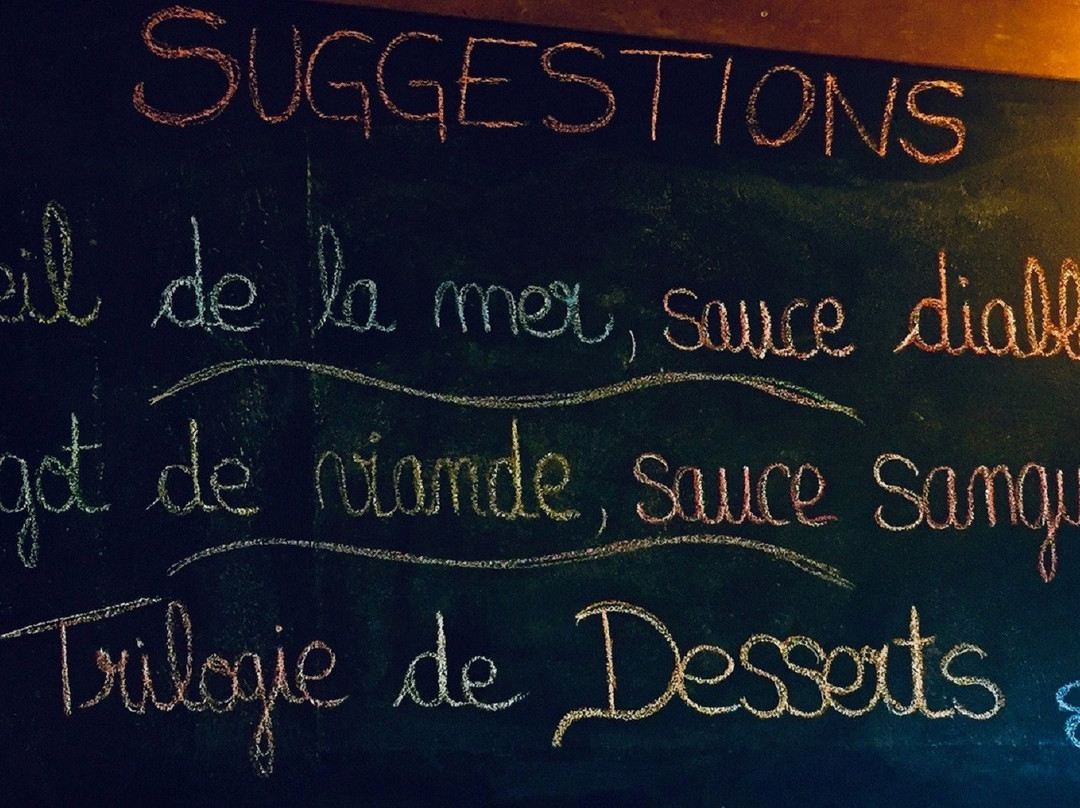 SUGGESTIONS
eil de la mer, sauce diabl
got de viande, sauce sangu
Trilogie de Desserts